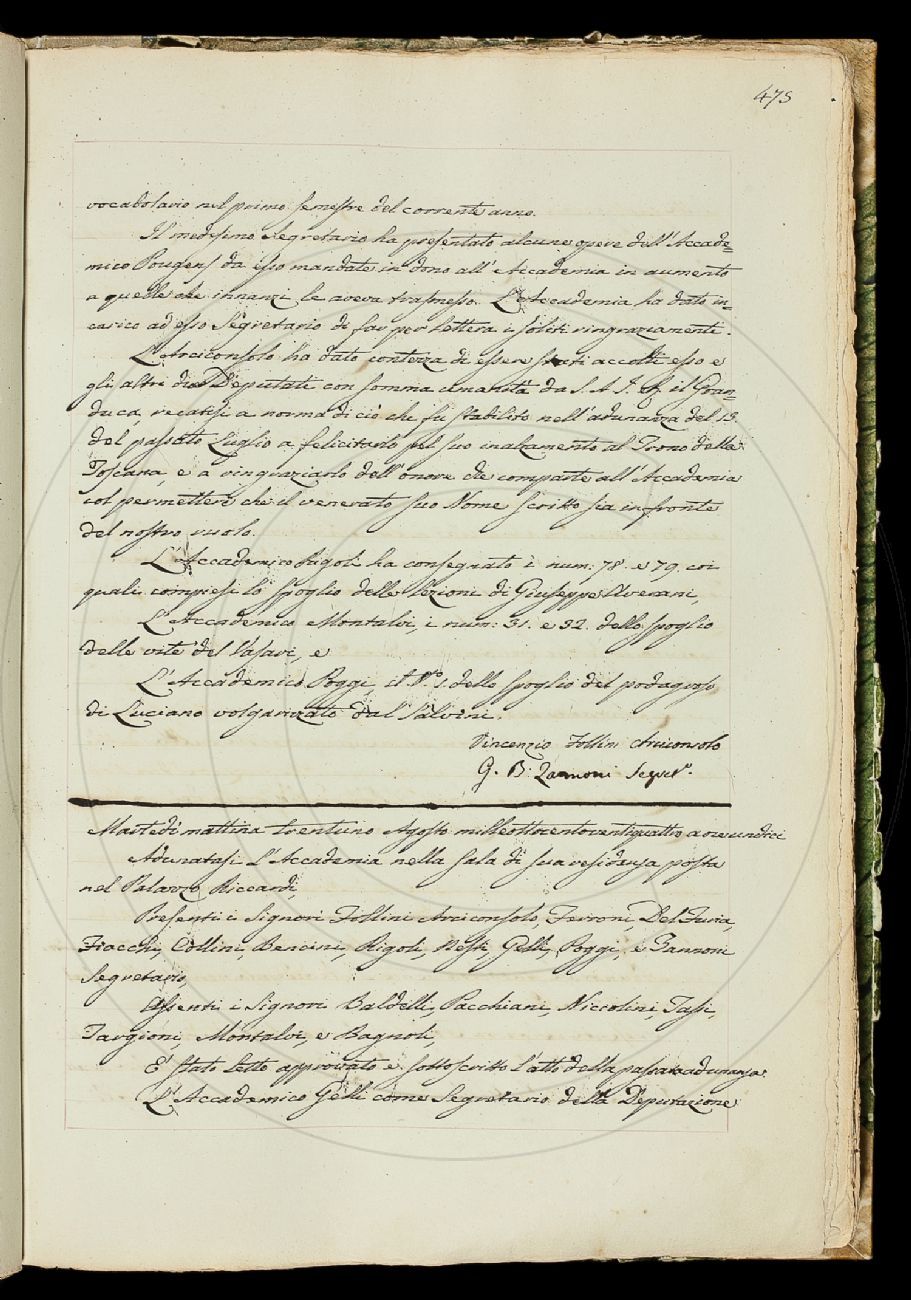 475
vocabolario nel primo semestre del corrente anno.
Il medesimo Segretario ha presentato alcune opere dell'Accade=
mico Pougens da esso mandate in dono all'Accademia in aumento
a quelle che innanzi le aveva trasmesso. L'Accademia ha dato in=
carico ad esso Segretario di far per lettera i soliti ringraziamenti.
L'Arciconsolo ha dato contezza di essere stati accolti esso e
gli altri due Deputati con somma umanità da S. A. I. R. il Gran=
duca, recatisi a norma di ciò che fu stabilito nell'adunanza del 13.
del passato Luglio a felicitarlo pel suo inalzamento al Trono della
Toscana, e a ringraziarlo dell'onore che comparte all'Accademia
col permettere che il venerato suo Nome scritto sia in fronte
del nostro ruolo.
L'Accademico Rigoli ha consegnato i num: 78. e 79. coi
quali compiesi lo spoglio delle Lezioni di Giuseppe Averani,
L'Accademico Montalvi, i num: 31. e 32. dello spoglio
delle vite del Vasari, e
L'Accademico Poggi, il N.º 1. dello spoglio del podagroso
di Luciano volgarizzato dal Salvini.
Vincenzio Follini Arciconsolo
G. B. Zannoni Segret.º
Martedì mattina trentuno Agosto milleottocentoventiquattro a ore undici
Adunatasi L'Accademia nella sala di sua residenza posta
nel Palazzo Riccardi,
Presenti i Signori Follini Arciconsolo, Ferroni, Del Furia,
Fiacchi, Collini, Bencini, Rigoli, Nesti, Gelli, Poggi, e Zannoni
Segretario,
Assenti i Signori Baldelli, Pacchiani, Niccolini, Tassi,
Targioni, Montalvi, e Bagnoli,
E' stato letto approvato e sottoscritto l'atto della passata adunanza
L'Accademico Gelli come Segretario della Deputazione